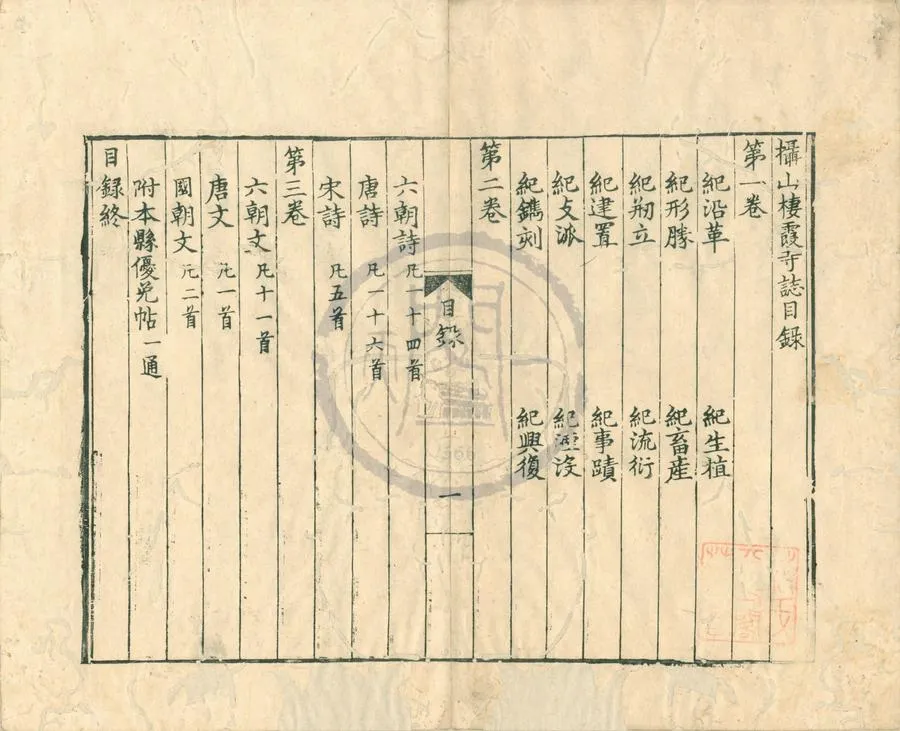 攝山棲霞寺誌目錄
第一卷
紀沿革 紀生植
紀形勝 紀畜産
紀刱立 紀流衍
紀建置 紀事蹟
紀支派 紀湮没
紀鐫刻 紀興復
第二卷
目錄 一
六朝詩 凡一十四首
唐詩 凡一十六首
宋詩 凡五首
第三卷
六朝文 凡十一首
唐文 凡一首
國朝文 凡二首
附本縣優免帖一通
目録終